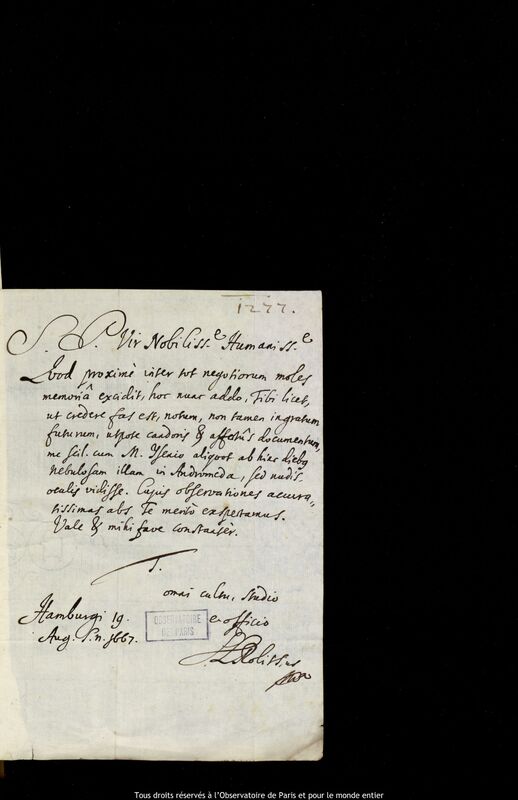 1277.
S. P. Vir Nobiliss.e Humaniss.e
Quod proximè inter tot negotiorum moles
memoriâ excidit, hoc nunc addo, Tibi licet,
ut credere fas est, notum, non tamen ingratum
futurum, utpote candoris & affectûs documentum,
me scil. cum M. Ysenio aliquot ab hinc diebus
nebulosam illam in Andromeda, sed nudis
oculis vidisse. Cujus observationes accura„
tissimas abs Te meritò exspectamus.
Vale & mihi fave constanter.
T.
omni cultu, studio
Hamburgi 19.
et officio
Aug. S. n. 1667.
OBSERVATOIRE
DE PARIS
Tous droits réservés à l'Observatoire de Paris et pour le monde entier